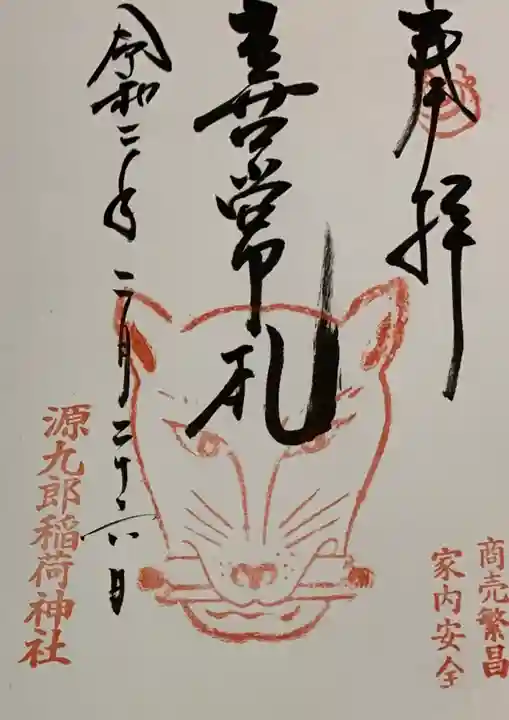 奉拝
喜常札
令和二年 二月二十六日
源九郎稲荷神社
商売繁昌
家内安全